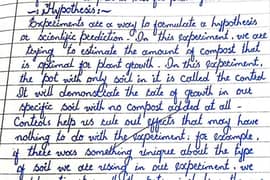 → Hypothesis:-
Experiments are a way to formulate a hypothesis
or scientific prediction. In this experiment, we are
trying to estimate the amount of compost that
is optimal for plant growth. In this experiment,
the pot with only soil in it is called the control
It will demonstrate the rate of growth in our
specific soil with no compost added at all -
Controls help us rule out effects that may have
nothing to do with the experiment, for example,
if there was something unique about the type
of soil we are using in our experiment, we